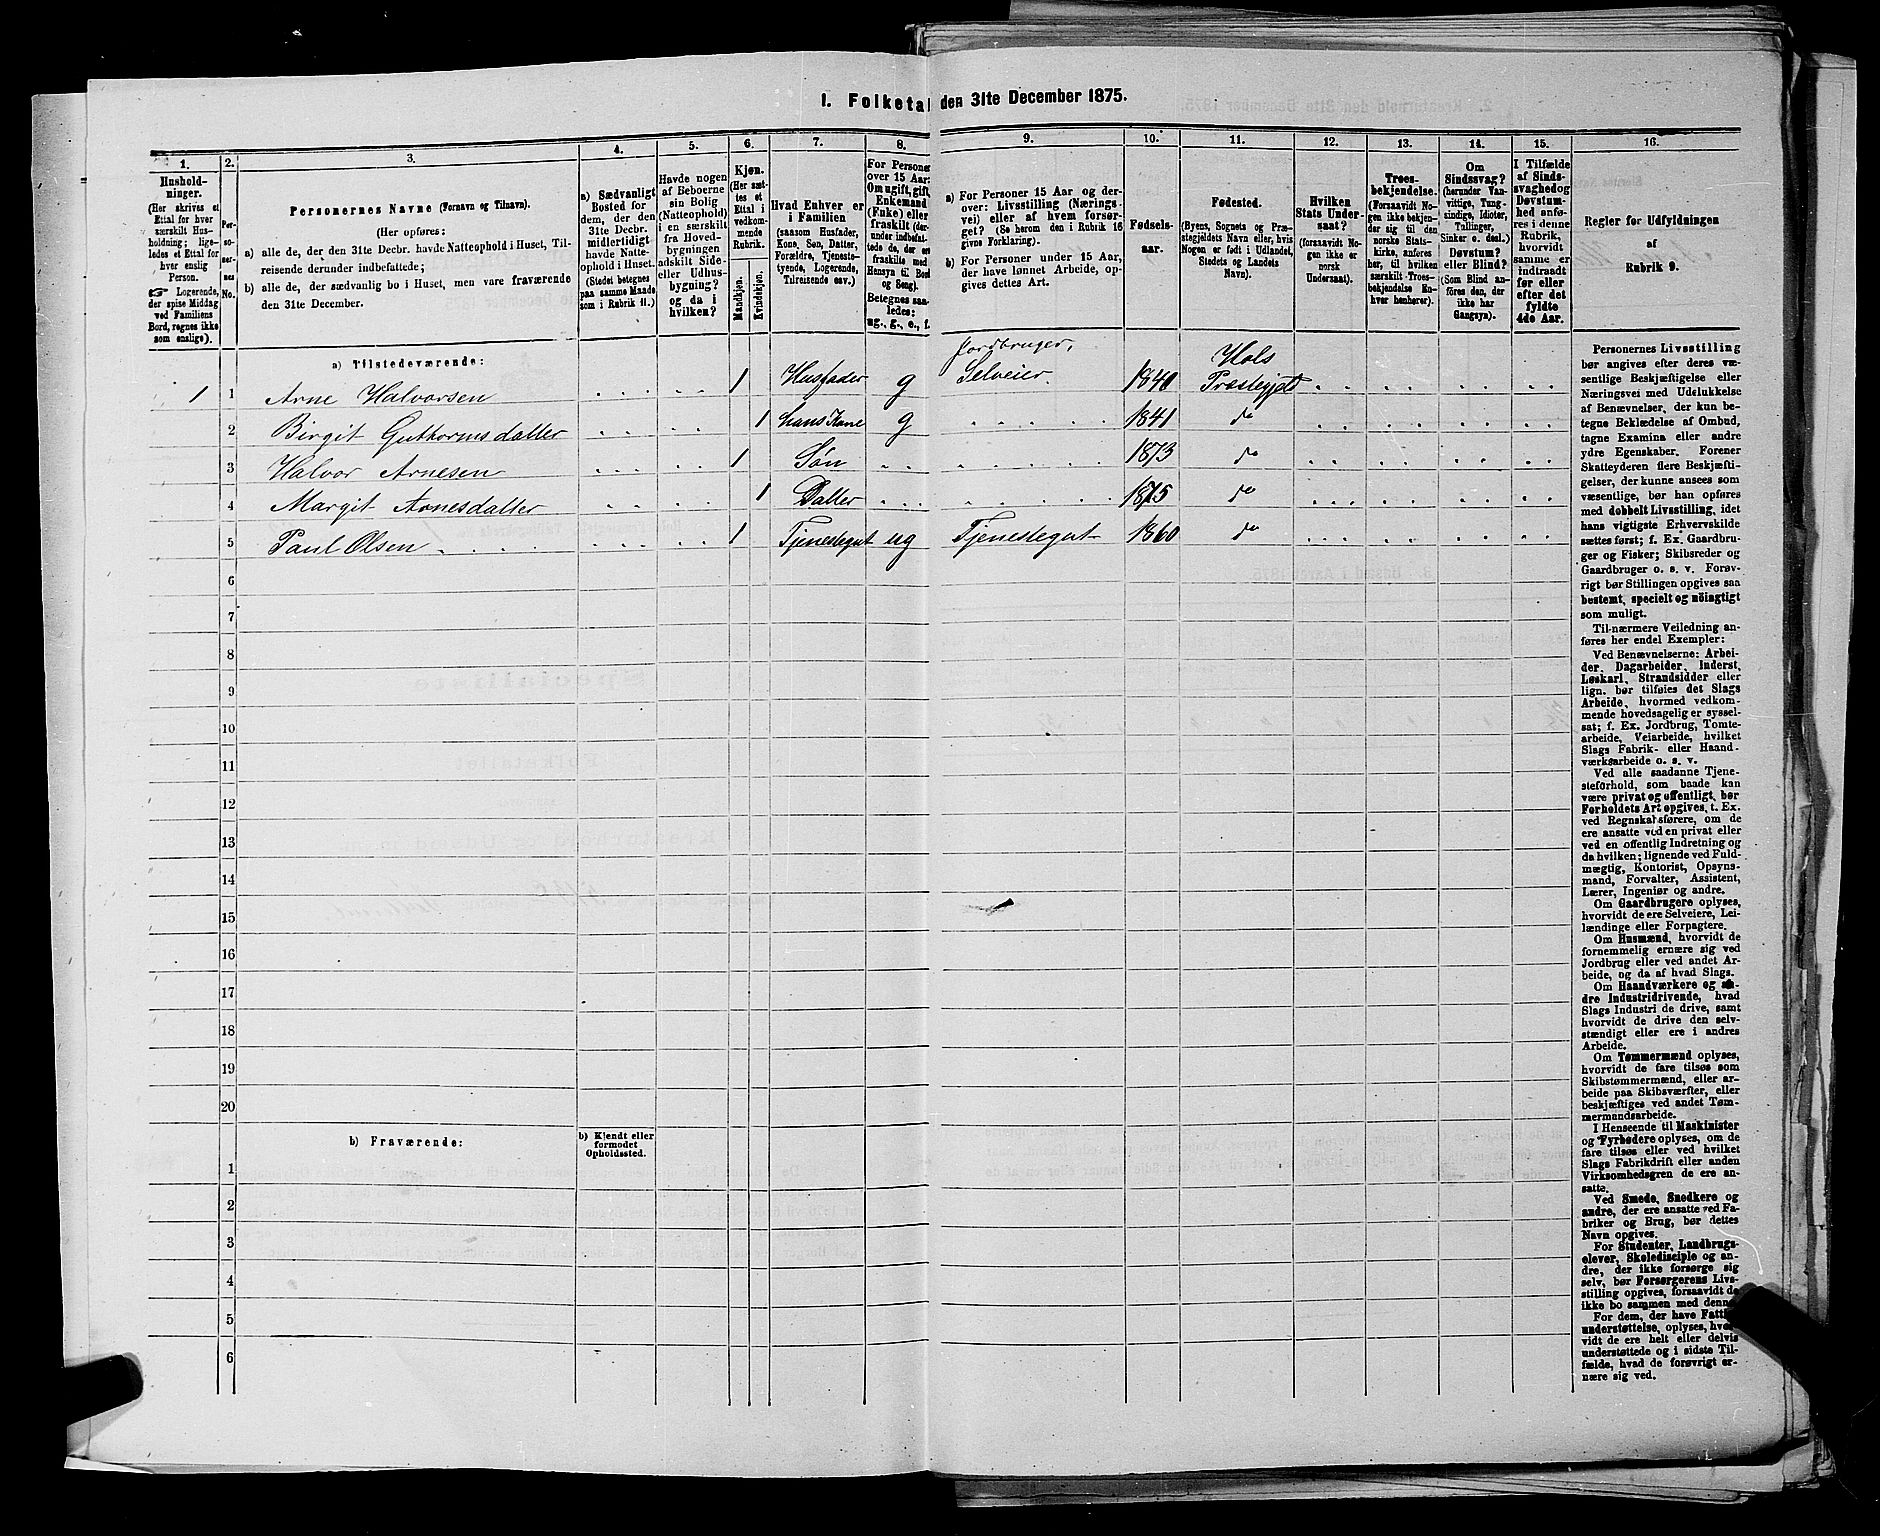 1. Folketal den 31te December 1875.
1. 2. 3. 4. 5. 6. 7. 8. 9. 10. 11. 12. 13. 14. 15. 16.
Hushold-
ninger.
(Her skrives et
Ettal for hver
særskilt Hus-
holdning; lige-
ledes et Ettal
for hver
enslig
Person.
☞ Logerende,
der spise Middag
ved Familiens
Bord, regnes ikke
som enslige).
Per-
so-
ner-
nes
No.
Personernes Navne (Fornavn og Tilnavn).
(Her opføres:
a) alle de, der den 31te Decbr. havde Natteophold i Huset, Til-
reisende derunder indbefattede;
b) alle de, der sædvanlig bo i Huset, men vare fraværende
den 31te December.
a) Sædvanligt
Bosted for
dem, der den
31te Decbr.
midlertidigt
havde Natte-
ophold i Huset.
(Stedet betegnes
paa samme Maade
som i Rubrik 11.)
Havde nogen
af Beboerne
sin Bolig
(Natteophold)
i en særskilt
fra Hoved-
bygningen
adskilt Side-
eller Udhus-
bygning?
og da i
hvilken?
Kjøn.
(Her sæt-
tes et
Ettal i
vedkom-
mende
Rubrik.
Mandkjøn.
Kvindekjøn.
Hvad Enhver er
i Familien
(saasom Husfader,
Kone, Søn, Datter,
Forældre, Tjeneste-
tyende, Logerende,
Tilreisende osv.)
For Personer
over 15 Aar:
Om ugift, gift,
Enkemand
(Enke) eller
fraskilt (der-
under indbefat-
tede de, der ere
fraskilte med
Hensyn til Bord
og Seng).
Betegnes saa-
ledes:
ug., g., e., f.
a) For Personer 15 Aar og der-
over: Livsstilling (Nærings-
vei) eller af hvem forsør-
get? (Se herom den i Rubrik 16
givne Forklaring).
b) For Personer under 15 Aar,
der have lønnet Arbeide, op-
gives dettes Art.
Fødsels-
aar.
Fødested.
(Byens, Sognets og Præ-
stegjeldets Navn eller, hvis
Nogen er født i Udlandet,
Stedets og Landets
Navn).
Hvilken
Stats Under-
saat?
(forsaavidt No-
gen ikke er
norsk
Undersaat).
Troes-
bekjendelse.
(Forsaavidt No-
gen ikke bekjen-
der sig til den
norske Stats-
kirke, anføres
her, til hvilken
særskilt Troes-
bekjendelse En-
hver henhører).
Om
Sindssvag?
(herunder Van-
vittige, Tung-
sindige, Idioter,
Tallinger,
Sinker o. desl.).
Døvstum?
eller Blind?
(Som Blind an-
føres den, der
ikke har
Gangsyn).
I Tilfælde
af Sinds-
svaghed og
Døvstum-
hed anfø-
res i denne
Rubrik,
hvorvidt
samme er
indtraadt
før eller
efter det
fyldte
4de Aar.
Regler for Udfyldningen
af
Rubrik 9.
a) Tilstedeværende:
1 1 Arne Halvorsen 1 Husfader g Jordbruger, Selveier. 1840 Hols Præstegjeld
2 Birgit Guttormsdatter 1 hans Kone g 1841 do
3 Halvor Arnesen 1 Søn 1873 do
4 Margit Arnesdatter 1 Datter 1875 do
5 Paul Olsen 1 Tjenestegut ug Tjenestegut 1860 do
6
7
8
9
10
11
12
13
14
15
16
17
18
19
20
b) Fraværende:
b) Kjendt eller
formodet
Opholdssted.
1
2
3
4
5
6
Personernes Livsstilling
bør angives efter deres væ-
sentlige Beskjæftigelse eller
Næringsvei med Udelukkelse
af Benævnelser, der kun be-
tegne Beklædelse af Ombud,
tagne Examina eller andre
ydre Egenskaber. Forener
Skatteyderen flere Beskjæfti-
gelser, der kunne ansees som
væsentlige, bør han opføres
med dobbelt Livsstilling, idet
hans vigtigste Erhvervskilde
sættes først; f. Ex. Gaardbru-
ger og Fisker; Skibsreder og
Gaardbruger o. s. v. Forøv-
rigt bør Stillingen opgives saa
bestemt, specielt og nöiagtigt
som muligt.
Til nærmere Veiledning an-
føres her endel Exempler:
Ved Benævnelserne: Arbei-
der, Dagarbeider, Inderst,
Løskarl, Strandsidder eller
lign. bør tilføies det Slags
Arbeide, hvormed vedkom-
mende hovedsagelig er syssel-
sat; f. Ex. Jordbrug, Tomte-
arbeide, Veiarbeide, hvilket
Slags Fabrik- eller Haand-
værksarbeide o. s. v.
Ved alle saadanne Tjene-
steforhold, som baade kan
være privat og offentligt, bør
Forholdets Art opgives, t. Ex.
ved Regnskabsførere, om de
ere ansatte ved en privat eller
ved en offentlig Indretning og
da hvilken; lignende ved Fuld-
mægtig, Kontorist, Opsyns-
mand, Forvalter, Assistent,
Lærer, Ingeniør og andre.
Om Gaardbrugere oplyses,
hvorvidt de ere Selveiere, Lei-
lændinge eller Forpagtere.
Om Husmænd, hvorvidt de
fornemmelig ernære sig ved
Jordbrug eller ved andet Ar-
beide, og da af hvad Slags.
Om Haandværkere og an-
dre Industridrivende, hvad
Slags Industri de drive, samt
hvorvidt de drive den selv-
stændigt eller ere i andres
Arbeide.
Om Tømmermænd oplyses,
hvorvidt de fare tilsøs som
Skibstømmermænd, eller ar-
beide paa Skibsværfter, eller
beskjæftiges ved andet Tøm-
mermandsarbeide.
I Henseende til Maskinister
og Fyrbødere oplyses, om de
fare tilsøs eller ved hvilket
Slags Fabrikdrift eller anden
Virksomhedsgren de ere an-
satte.
Ved Smede, Snedkere og
andre, der ere ansatte ved Fa-
briker og Brug, bør dettes
Navn opgives.
For Studenter, Landbrugs-
elever, Skoledisciple og an-
dre, der ikke forsørge sig
selv, bør Forsørgerens Livs-
stilling opgives, forsaavidt de
ikke bo sammen med denne.
For dem, der have Fattig-
understøttelse, oplyses, hvor-
vidt de ere helt eller delvis
understøttede og i sidste Til-
fælde, hvad de forøvrigt er-
nære sig ved.